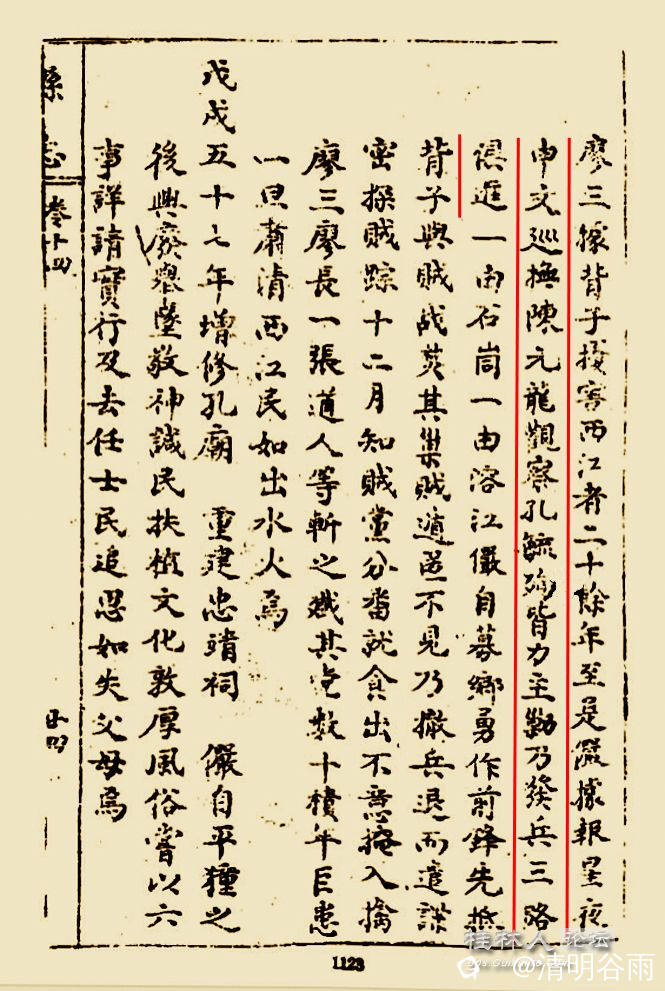 廖三據背子擾害西江者二十餘年至是儼據報星夜
申文巡撫陳元龍觀察孔毓珣皆力主勦乃發兵三路
俱進一由石崗一由溶江儼自募鄉勇作前鋒先抵
背子與賊战焚其巢賊遁匿不見乃撤兵退而遣諜
密探賊踪十二月知賊黨分畨就食出不意掩入擒
廖三廖長一張道人等斬之殱其党数十積年巨患
一旦肅清西江民如出水火焉
戊戌五十七年增修孔廟 重建忠靖祠 儼自平獞之
後興廢舉墜敬神誠民扶植文化敦厚風俗嘗以六
事詳請實行及去任士民追思如失父母焉
縣志 卷十四
1123
桂林人论坛
@清明谷雨